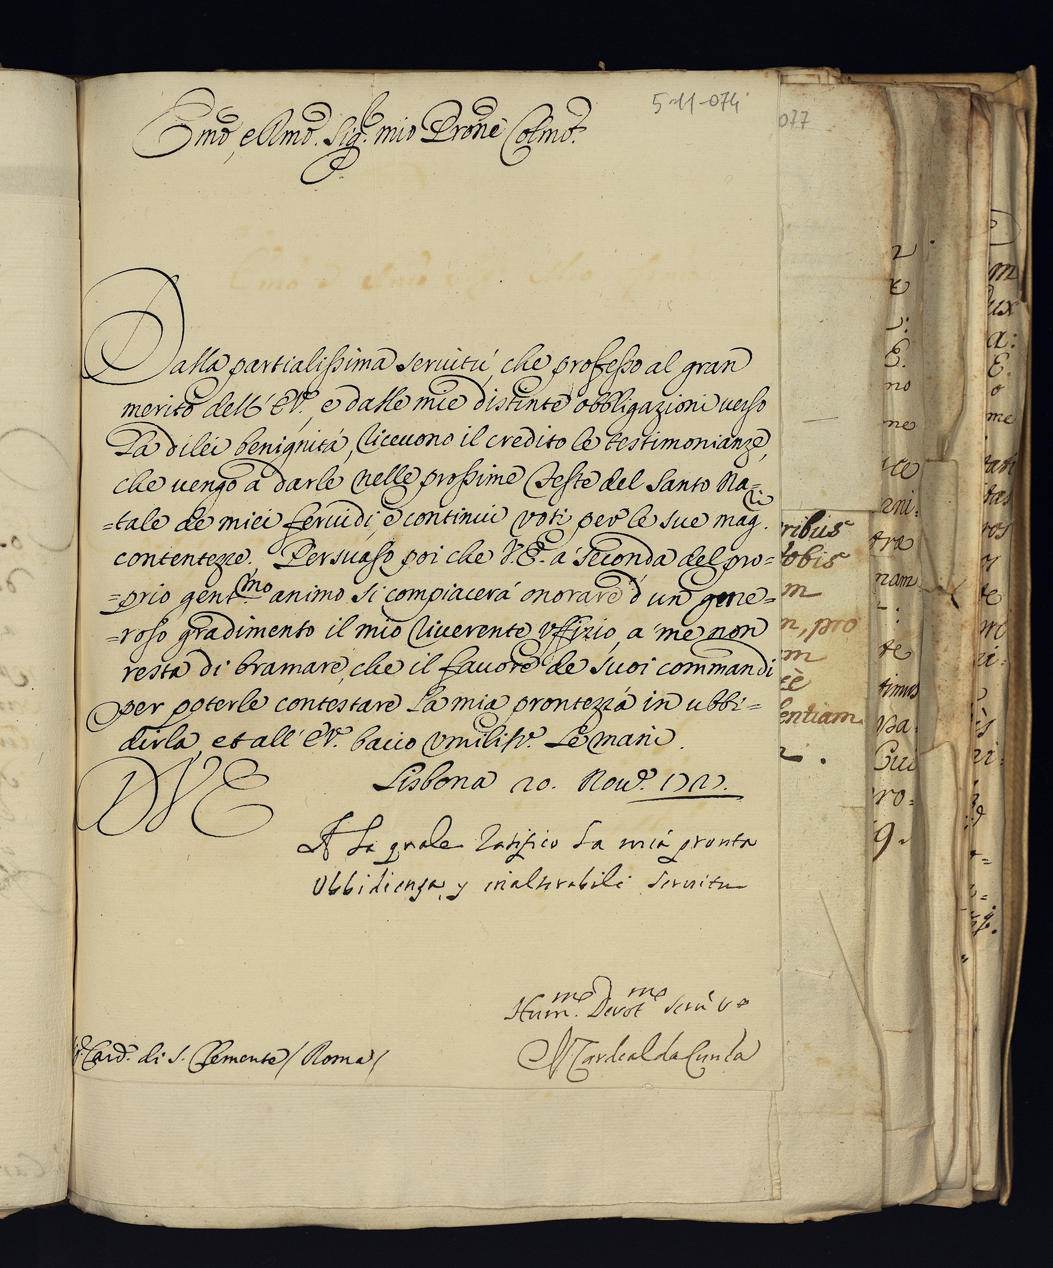 5-11-074
077
Emõ, e Rmõ. Sigr. mio Prone Colmo.
Dalla partialissima servitù, che professo al gran
merito dell' E.V., e dalle mie distinte obbligazioni verso
La di lei benignità, ricevono il credito le testimonianze,
che vengo à darle nelle prossime Feste del Santo Na=
=tale de miei fervidi, e continui voti per le sue mag.ri
contentezze. Persuaso poi che V.E. à seconda del pro=
=prio gent.mo animo si compiacerà onorare d'un gene=
=roso gradimento il mio riverente uffizio, a me non
resta di bramare, che il favore de suoi commandi
per poterle contestare La mia prontezza in ubbi=
=dirla, et all' E.V. bacio umilisse. Le mani.
Lisbona 20. Nove. 1727.
DVE
A La quale ratifico la mia pronta
Ubbidienza, y inalterabili servitu
Hum.me Devot.me
N Cardeal da Cunha
Card. di S. Clemente / Roma /